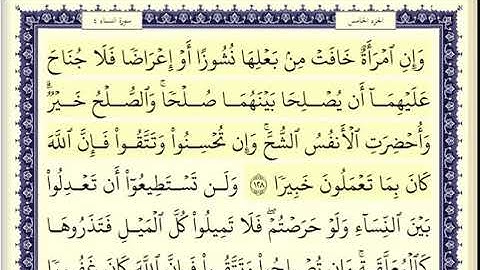 الجزء الخامس سورة النساء ٤
وَإِنِ ٱمْرَأَةٌ خَافَتْ مِنۢ بَعْلِهَا نُشُوزًا أَوْ إِعْرَاضًا فَلَا جُنَاحَ
عَلَيْهِمَآ أَن يُصْلِحَا بَيْنَهُمَا صُلْحًا ۚ وَٱلصُّلْحُ خَيْرٌ ۗ
وَأُحْضِرَتِ ٱلْأَنفُسُ ٱلشُّحَّ ۚ وَإِن تُحْسِنُوا۟ وَتَتَّقُوا۟ فَإِنَّ ٱللَّهَ
كَانَ بِمَا تَعْمَلُونَ خَبِيرًا ١٢٨ وَلَن تَسْتَطِيعُوٓا۟ أَن تَعْدِلُوا۟
بَيْنَ ٱلنِّسَآءِ وَلَوْ حَرَصْتُمْ ۖ فَلَا تَمِيلُوا۟ كُلَّ ٱلْمَيْلِ فَتَذَرُوهَا
كَٱلْمُعَلَّقَةِ ۚ وَإِن تُصْلِحُوا۟ وَتَتَّقُوا۟ فَإِنَّ ٱللَّهَ كَانَ غَفُورًا